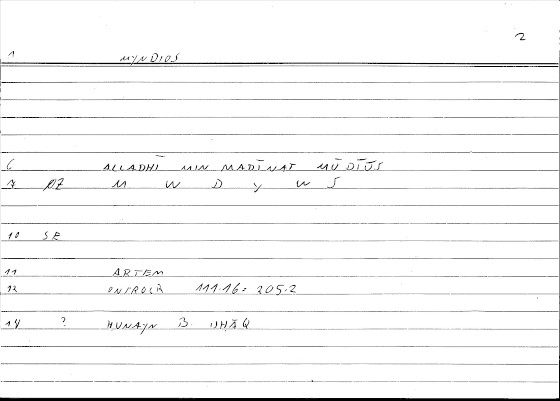 2
1 MYNDIOS
6 ALLADHĪ MIN MADĪNAT MŪDĪŪS
7 M W D Y W S
10 SE
11 ARTEM
12 ONIROCR 111.16 = 205.2
14 ? HUNAYN B. ISHĀQ